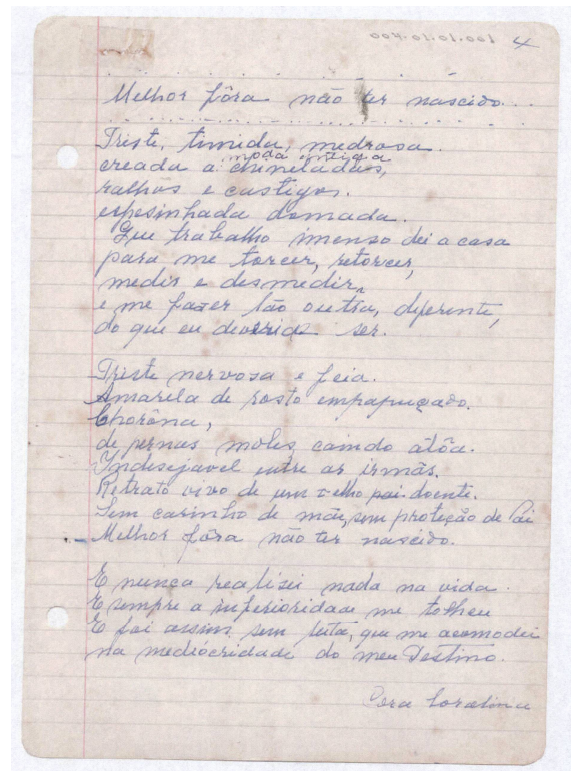 4
Melhor fôra não ter nascido...
Triste, timida, medrosa.
moda antiga
creada a chineladas,
ralhos e castigos.
espesinhada domada.
Que trabalho imenso dei a casa
para me torcer, retorcer,
medir e desmedir,
e me fazer tão outra, diferente,
do que eu deveria ser.
Triste nervosa e feia.
Amarela de rosto empapuçado.
Chorôna,
de pernas moles, caindo atôa.
Indesejavel entre as irmãs.
Retrato vivo de um velho pai doente.
Sem carinho de mãe, sem proteção de Pai
Melhor fôra não ter nascido.
E nunca realisei nada na vida.
E sempre a inferioridade me tolheu
E foi assim, sem luta, que me acomodei
na mediocridade do meu Destino.
Cora Coralina